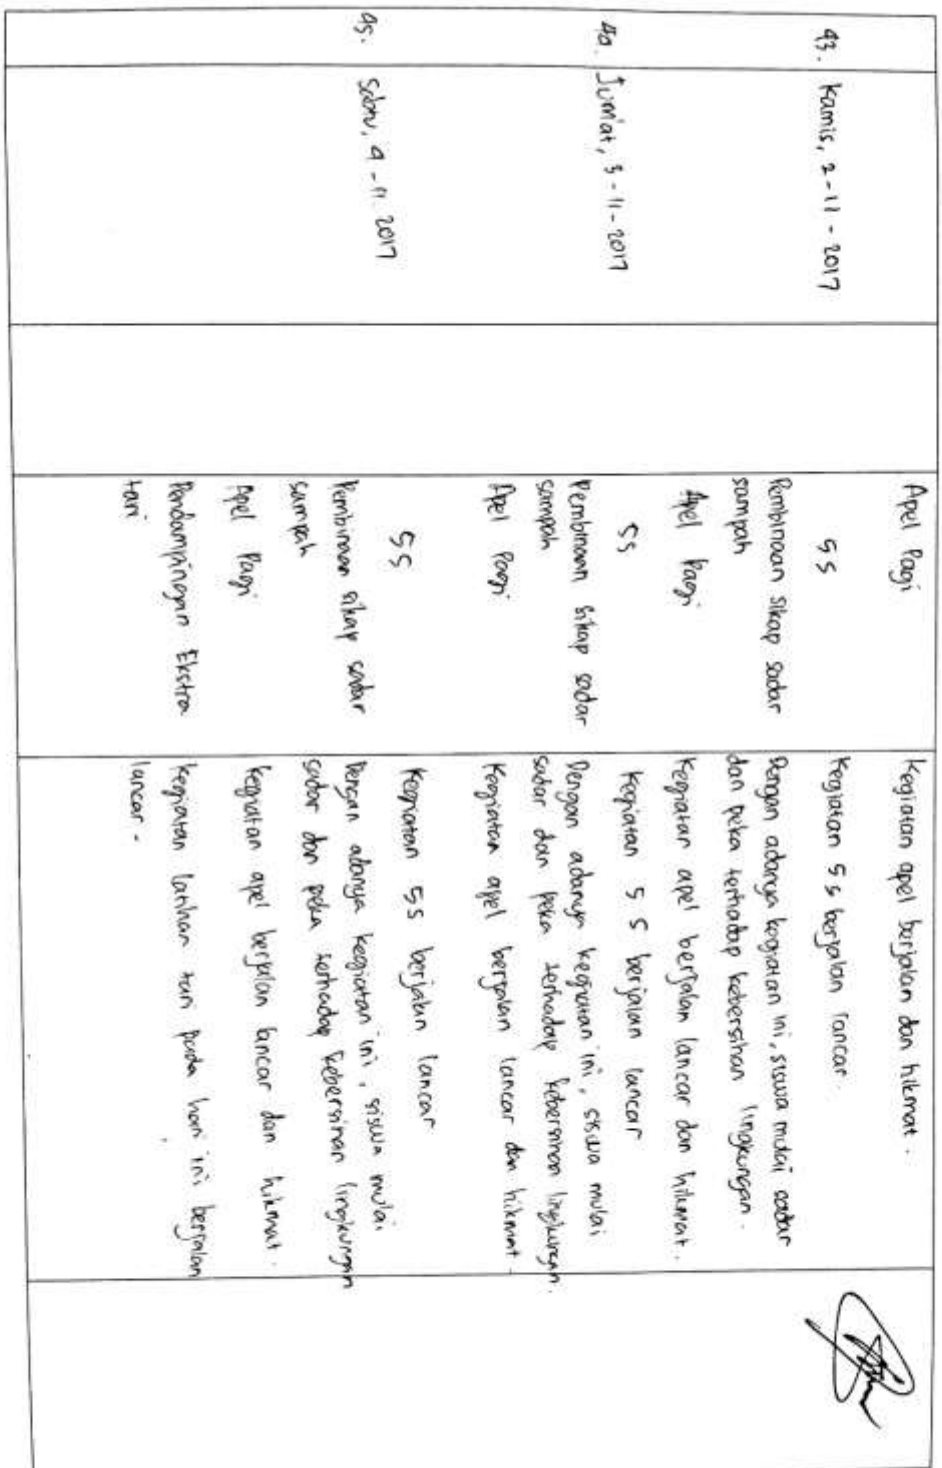 Apel Pagi
Kegiatan apel berjalan dan hikmat.
43. Kamis, 2-11-2017
5S
Kegiatan 5S berjalan lancar.
Pembinaan sikap sadar
sampah
Dengan adanya kegiatan ini, siswa mulai sadar
dan peka terhadap kebersihan lingkungan.
Apel Pagi
Kegiatan apel berjalan lancar dan hikmat.
44. Jum'at, 3-11-2017
5S
Kegiatan 5S berjalan lancar
Pembinaan sikap sadar
sampah
Dengan adanya kegiatan ini, siswa mulai
sadar dan peka terhadap kebersihan lingkungan.
Apel Pagi
Kegiatan apel berjalan lancar dan hikmat.
45. Sabtu, 4-11-2017
5S
Kegiatan 5S berjalan lancar
Pembinaan sikap sadar
sampah
Dengan adanya kegiatan ini, siswa mulai
sadar dan peka terhadap kebersihan lingkungan
Apel Pagi
Kegiatan apel berjalan lancar dan hikmat.
Pendampingan Ekstra
tari
Kegiatan latihan tari pada hari ini berjalan
lancar.